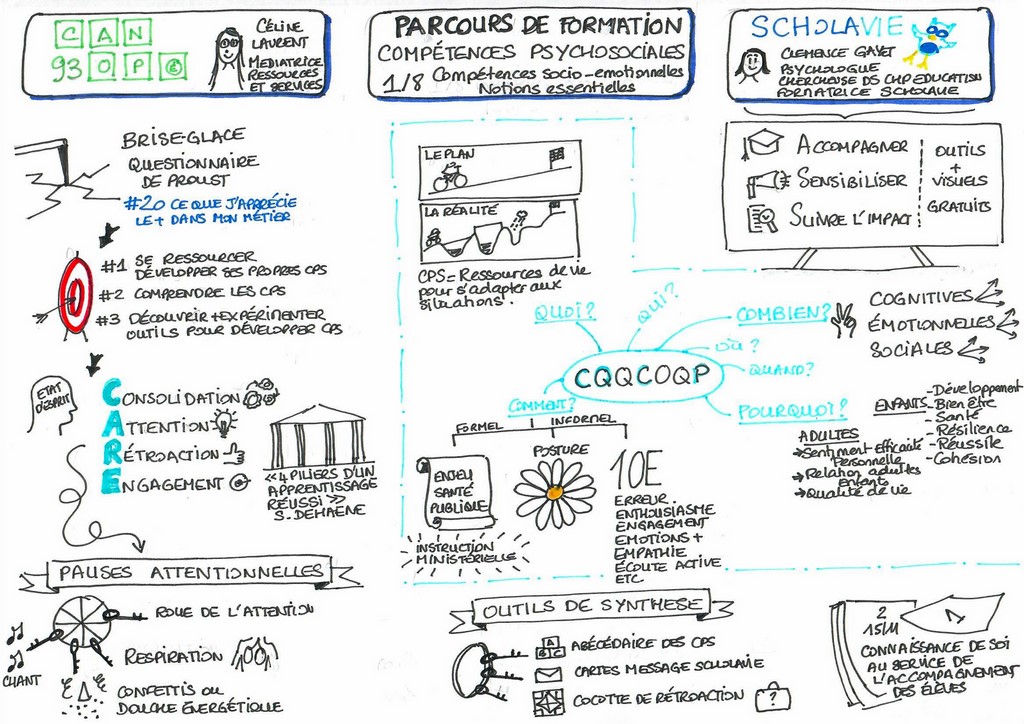 CAN
93 OPÉ
CÉLINE
LAURENT
MEDIATRICE
RESSOURCES
ET SERVICES
PARCOURS DE FORMATION
COMPÉTENCES PSYCHOSOCIALES
1/8 Compétences socio-emotionnelles
Notions essentielles
SCHOLAVIE
CLEMENCE GAYET
PSYCHOLOGUE
CHERCHEUSE DS CHP EDUCATION
FORMATRICE SCHOLAVIE
BRISE-GLACE
QUESTIONNAIRE
DE PROUST
#20 CE QUE J'APPRÉCIE
LE + DANS MON MÉTIER
#1 SE RESSOURCER
DÉVELOPPER SES PROPRES CPS
#2 COMPRENDRE LES CPS
#3 DÉCOUVRIR + EXPÉRIMENTER
OUTILS POUR DÉVELOPPER CPS
ETAT
D'ESPRIT
CONSOLIDATION
ATTENTION
RÉTROACTION
ENGAGEMENT
<< 4 PILIERS D'UN
APPRENTISSAGE
RÉUSSI >>
S. DEHAENE
PAUSES ATTENTIONNELLES
ROUE DE L'ATTENTION
RESPIRATION
CHANT
CONFETTIS OU
DOUCHE ÉNERGÉTIQUE
LE PLAN
LA RÉALITÉ
CPS = Ressources de vie
pour s'adapter aux
situations.
ACCOMPAGNER
SENSIBILISER
SUIVRE L'IMPACT
OUTILS
+
VISUELS
GRATUITS
CQQCOQP
QUOI?
QUI?
COMBIEN?
OÙ?
QUAND?
POURQUOI?
COMMENT?
COGNITIVES
ÉMOTIONNELLES
SOCIALES
ENFANTS
- Développement
- Bien être
- Santé
- Résilience
- Réussite
- Cohésion
ADULTES
→ Sentiment Efficacité
Personnelle
→ Relation adultes
enfants
→ Qualité de vie
FORMEL
INFORMEL
ENJEU
SANTÉ
PUBLIQUE
INSTRUCTION
MINISTÉRIELLE
POSTURE
10E
ERREUR
ENTHOUSIASME
ENGAGEMENT
EMOTIONS +
EMPATHIE
ÉCOUTE ACTIVE
ETC
OUTILS DE SYNTHESE
A
B C
ABÉCÉDAIRE DES CPS
CARTES MESSAGE SCHOLAVIE
COCOTTE DE RÉTROACTION
?
2
15/11
1
CONNAISSANCE DE SOI
AU SERVICE DE
L'ACCOMPAGNEMENT
DES ÉLÈVES